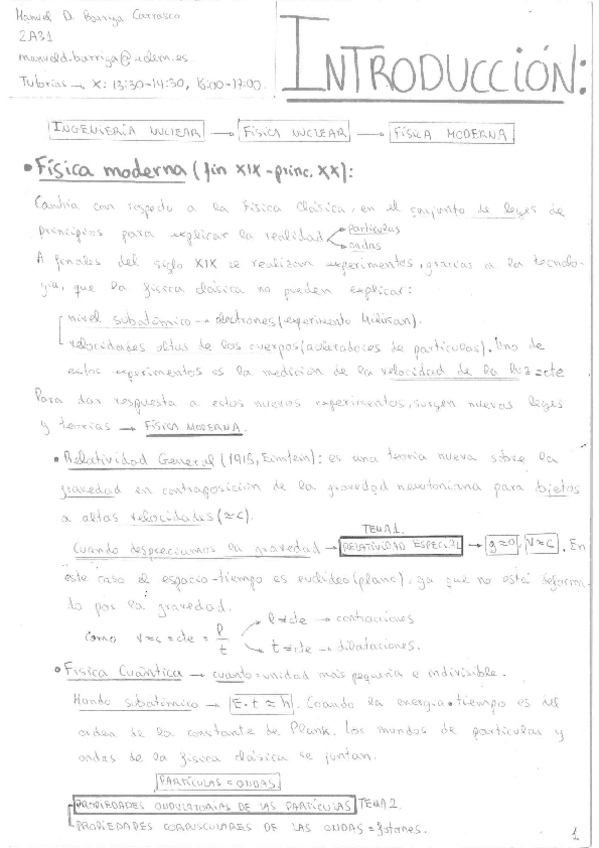 Manuel D. Barriga Carrasco
2A31
manueld.barriga@uclm.es
Tutorías → X: 13:30-14:30, 16:00-17:00.
INTRODUCCIÓN:
INGENIERÍA NUCLEAR → FÍSICA NUCLEAR → FÍSICA MODERNA
• Física moderna (fin XIX - princ. XX):
Cambia con respecto a la Física Clásica, en el conjunto de leyes de
principios para explicar la realidad
• partículas
• ondas
A finales del siglo XIX se realizan experimentos, gracias a la tecnolo-
gía, que la física clásica no pueden explicar:
nivel subatómico → electrones (experimento Milikan).
velocidades altas de los cuerpos (aceleradores de partículas). Uno de
estos experimentos es la medición de la velocidad de la luz = cte
Para dar respuesta a estos nuevos experimentos, surgen nuevas leyes
y teorías → FÍSICA MODERNA.
• Relatividad General (1915, Einstein): es una teoría nueva sobre la
gravedad en contraposición de la gravedad newtoniana para objetos
a altas velocidades (≈c).
TEMA 1.
Cuando despreciamos la gravedad → RELATIVIDAD ESPECIAL → g≈0, v≈c. En
este caso el espacio-tiempo es euclídeo (plano), ya que no está deforma-
do por la gravedad.
como v≈c = cte = l/t
l≠cte → contracciones
t≠cte → dilataciones.
• Física Cuántica → cuanto = unidad más pequeña e indivisible.
Mundo subatómico → E·t ≈ h. Cuando la energía·tiempo es del
orden de la constante de Plank. Los mundos de partículas y
ondas de la física clásica se juntan.
PARTÍCULAS = ONDAS
PROPIEDADES ONDULATORIAS DE LAS PARTÍCULAS TEMA 2.
PROPIEDADES CORPUSCULARES DE LAS ONDAS = fotones.
1